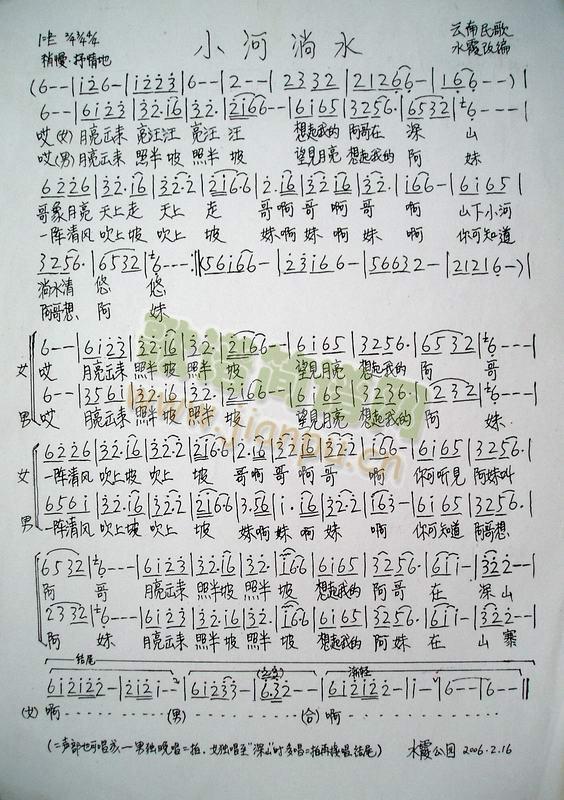 小河淌水
云南民歌
水霞改编
稍慢·抒情地
(6--|i26-|i223|6--|2--|2332|212666|166--)|
6--|6i23|32·i6|32·|2i66--|6i65|3256·|6532|6---|
哎(女)月亮出来 亮汪汪 亮汪 汪 想起我的 阿哥在 深 山
哎(男)月亮出来 照半坡 照半 坡 望见月亮 想起我的 阿 妹
62226|32·i6|32·2|2i66·6|2·i6|32·i6|32·|i66-|6i65|
哥象月亮 天上走 天上 走 哥啊哥啊哥啊 山下小河
一阵清风 吹上坡 吹上 坡 妹啊妹啊妹啊 你可知道
3256·|6532|6---:||56i66-|23i66-|56632-|21216-)|
淌水清 悠 悠
阿哥想 阿 妹
6--|6i23|32·i6|32·|2i66--|6i65|3256·|6532|6---|
女 哎 月亮出来 照半坡 照半 坡 望见月亮 想起我的 阿 哥
6--|356i|32·i6|32·|2i66--|6i65|3236·|232|6---|
男 哎 月亮出来 照半坡 照半 坡 望见月亮 想起我的 阿 妹
62226|32·i6|32·2|2i66·6|2·i6|32·i6|32·|i66-|6i65|3256·|
女 一阵清风 吹上坡 吹上 坡 哥啊哥啊哥啊 你可听见 阿妹叫
656i|32·i6|32·2|2i66·|3·56|i·i6|32·|i63-|6i65|3256·|
男 一阵清风 吹上坡 吹上 坡 妹啊妹啊妹啊 你可知道 阿哥想
6532|6---|6i23|32·i6|32·|i66|6i65|3256·|6ii-|322--|
阿 哥 月亮出来 照半坡 照半 坡 想起我的 阿哥 在 深山
2332|6---|6i23|32·i6|32·|i66|6i65|3256·|6ii-|322--|
阿 妹 月亮出来 照半坡 照半 坡 想起我的 阿妹 在 山寨
结尾 渐轻
6i2i22-|2i2i-|6i233-|6·32--|6i2i22-|i--i|6--|6--||
(女) 啊 (男) (合) 啊
水霞公园 2006.2.16
www.jianpu.cn